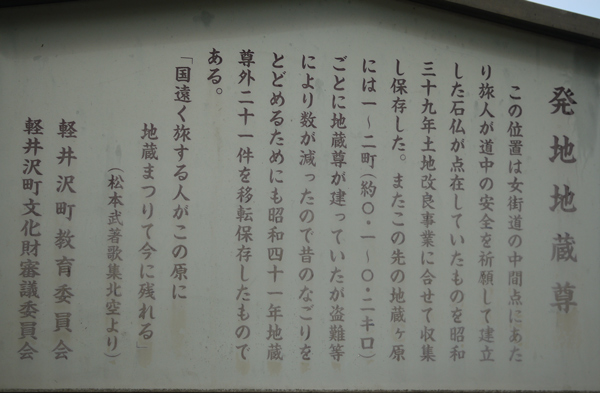 発地地蔵尊
この位置は女街道の中間点にあた
り旅人が道中の安全を祈願して建立
した石仏が点在していたものを昭和
三十九年土地改良事業に合せて収集
し保存した。またこの先の地蔵ヶ原
には一～二町（約〇・一～〇・二キロ）
ごとに地蔵尊が建っていたが盗難等
により数が減ったので昔のなごりを
とどめるためにも昭和四十一年地蔵
尊外二十一件を移転保存したもので
ある。
「国遠く旅する人がこの原に
地蔵まつりて今に残れる」
（松本武著歌集北空より）
軽井沢町教育委員会
軽井沢町文化財審議委員会